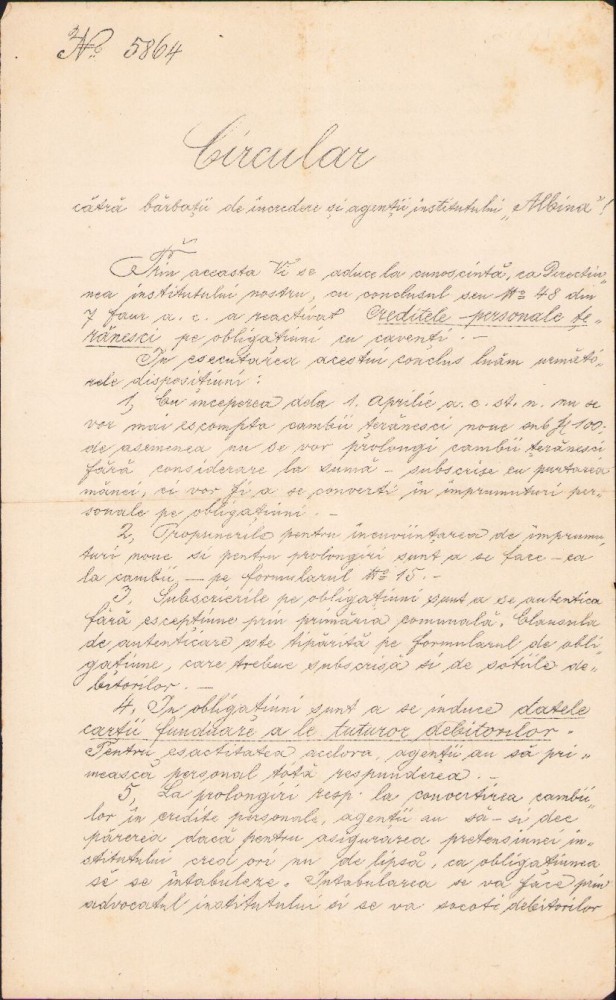 Nº 5864
Circular
cătră bărbații de încredere și agenții institutului „Albina"!
Prin aceasta Vi se aduce la cunoscință, ca Directiu„
nea institutului nostru, cu conclusul seu Nº 48 din
7 faur a. c. a reactivat Creditele-personale țe„
rănesci pe obligatiuni cu caventi. –
In esecutarea acestui conclus luăm următo„
rele dispositiuni:
1, Cu inceperea dela 1. Aprilie a. c. st. n. nu se
vor mai escompta cambii terănesci noue sub 100,
de asemenea nu se vor prolongi cambii terănesci
fără considerare la suma – subscrise cu purtarea
mânei, ci vor fi a se converti în imprumuturi per„
sonale pe obligatiuni. –
2, Propunerile pentru incuviințarea de imprumu„
turi noue si pentru prolongiri sunt a se face – ca
la cambii, – pe formularul Nº 15. –
3, Subscrierile pe obligațiuni sunt a se autentica
fără esceptiune prin primăria comunală. Clausula
de autenticare este tipărită pe formularul de obli„
gatiune, care trebue subscrisă si de sotiile de„
bitorilor. –
4, In obligatiuni sunt a se induce datele
cartii funduare a le tuturor debitorilor.
Pentru esactitatea acelora, agenții au să pri„
mească personal tótă respunderea. –
5, La prolongiri resp. la convertirea cambii„
lor in credite personale, agenții au sa-si dee
părerea dacă pentru asigurarea pretensiunei in„
stitutului cred ori nu de lipsă, ca obligatiunea
sĕ se intabuleze. Intabularea se va face prin
advocatul institutului si se va socoti debitorilor